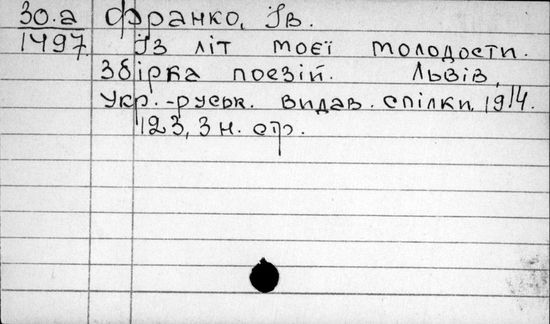 30.а Франко, Їв.
1497 Їз літ моєї молодости.
Збірка поезій. Львів,
Укр.-руськ. видав. спілки, 1914.
123, 3 н. стр.